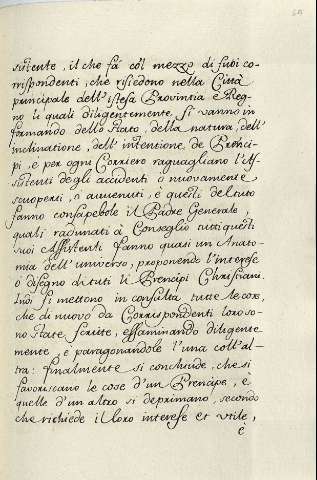 sistente, il che fà col mezzo di suoi co-
rrispondenti, che risiedono nella Città
principale dell'istesa Provintia è Reg-
no li quali diligentemente, si vanno in
formando dello stato, della natura, dell'
inclinatione, dell'intentione, de Prenci-
pi, è per ogni Corriero raguagliano l'As-
sistenti degli accidenti ò nuovamente
scoperti, ò auuenuti, è questi del tuto
fanno consapebole il Padre Generale,
quali radunati à Conseglio tutti questi
suoi Assistenti fanno quasi un Anato-
mia dell'universo, proponendo l'interese
ò disegno di tuti li Prencipi Christiani.
Ivi si mettono in consulta tutte le cose,
che di nuovo da Corrispondenti loro so-
no state scritte, essaminando diligente
mente, e paragonandole l'una coll'al-
tra: finalmente si conchiude, che si
favoriscano le cose d'un Prencipe, è
quelle d'un altro si deprimano, secondo
che richiede il loro interese et utile,
è